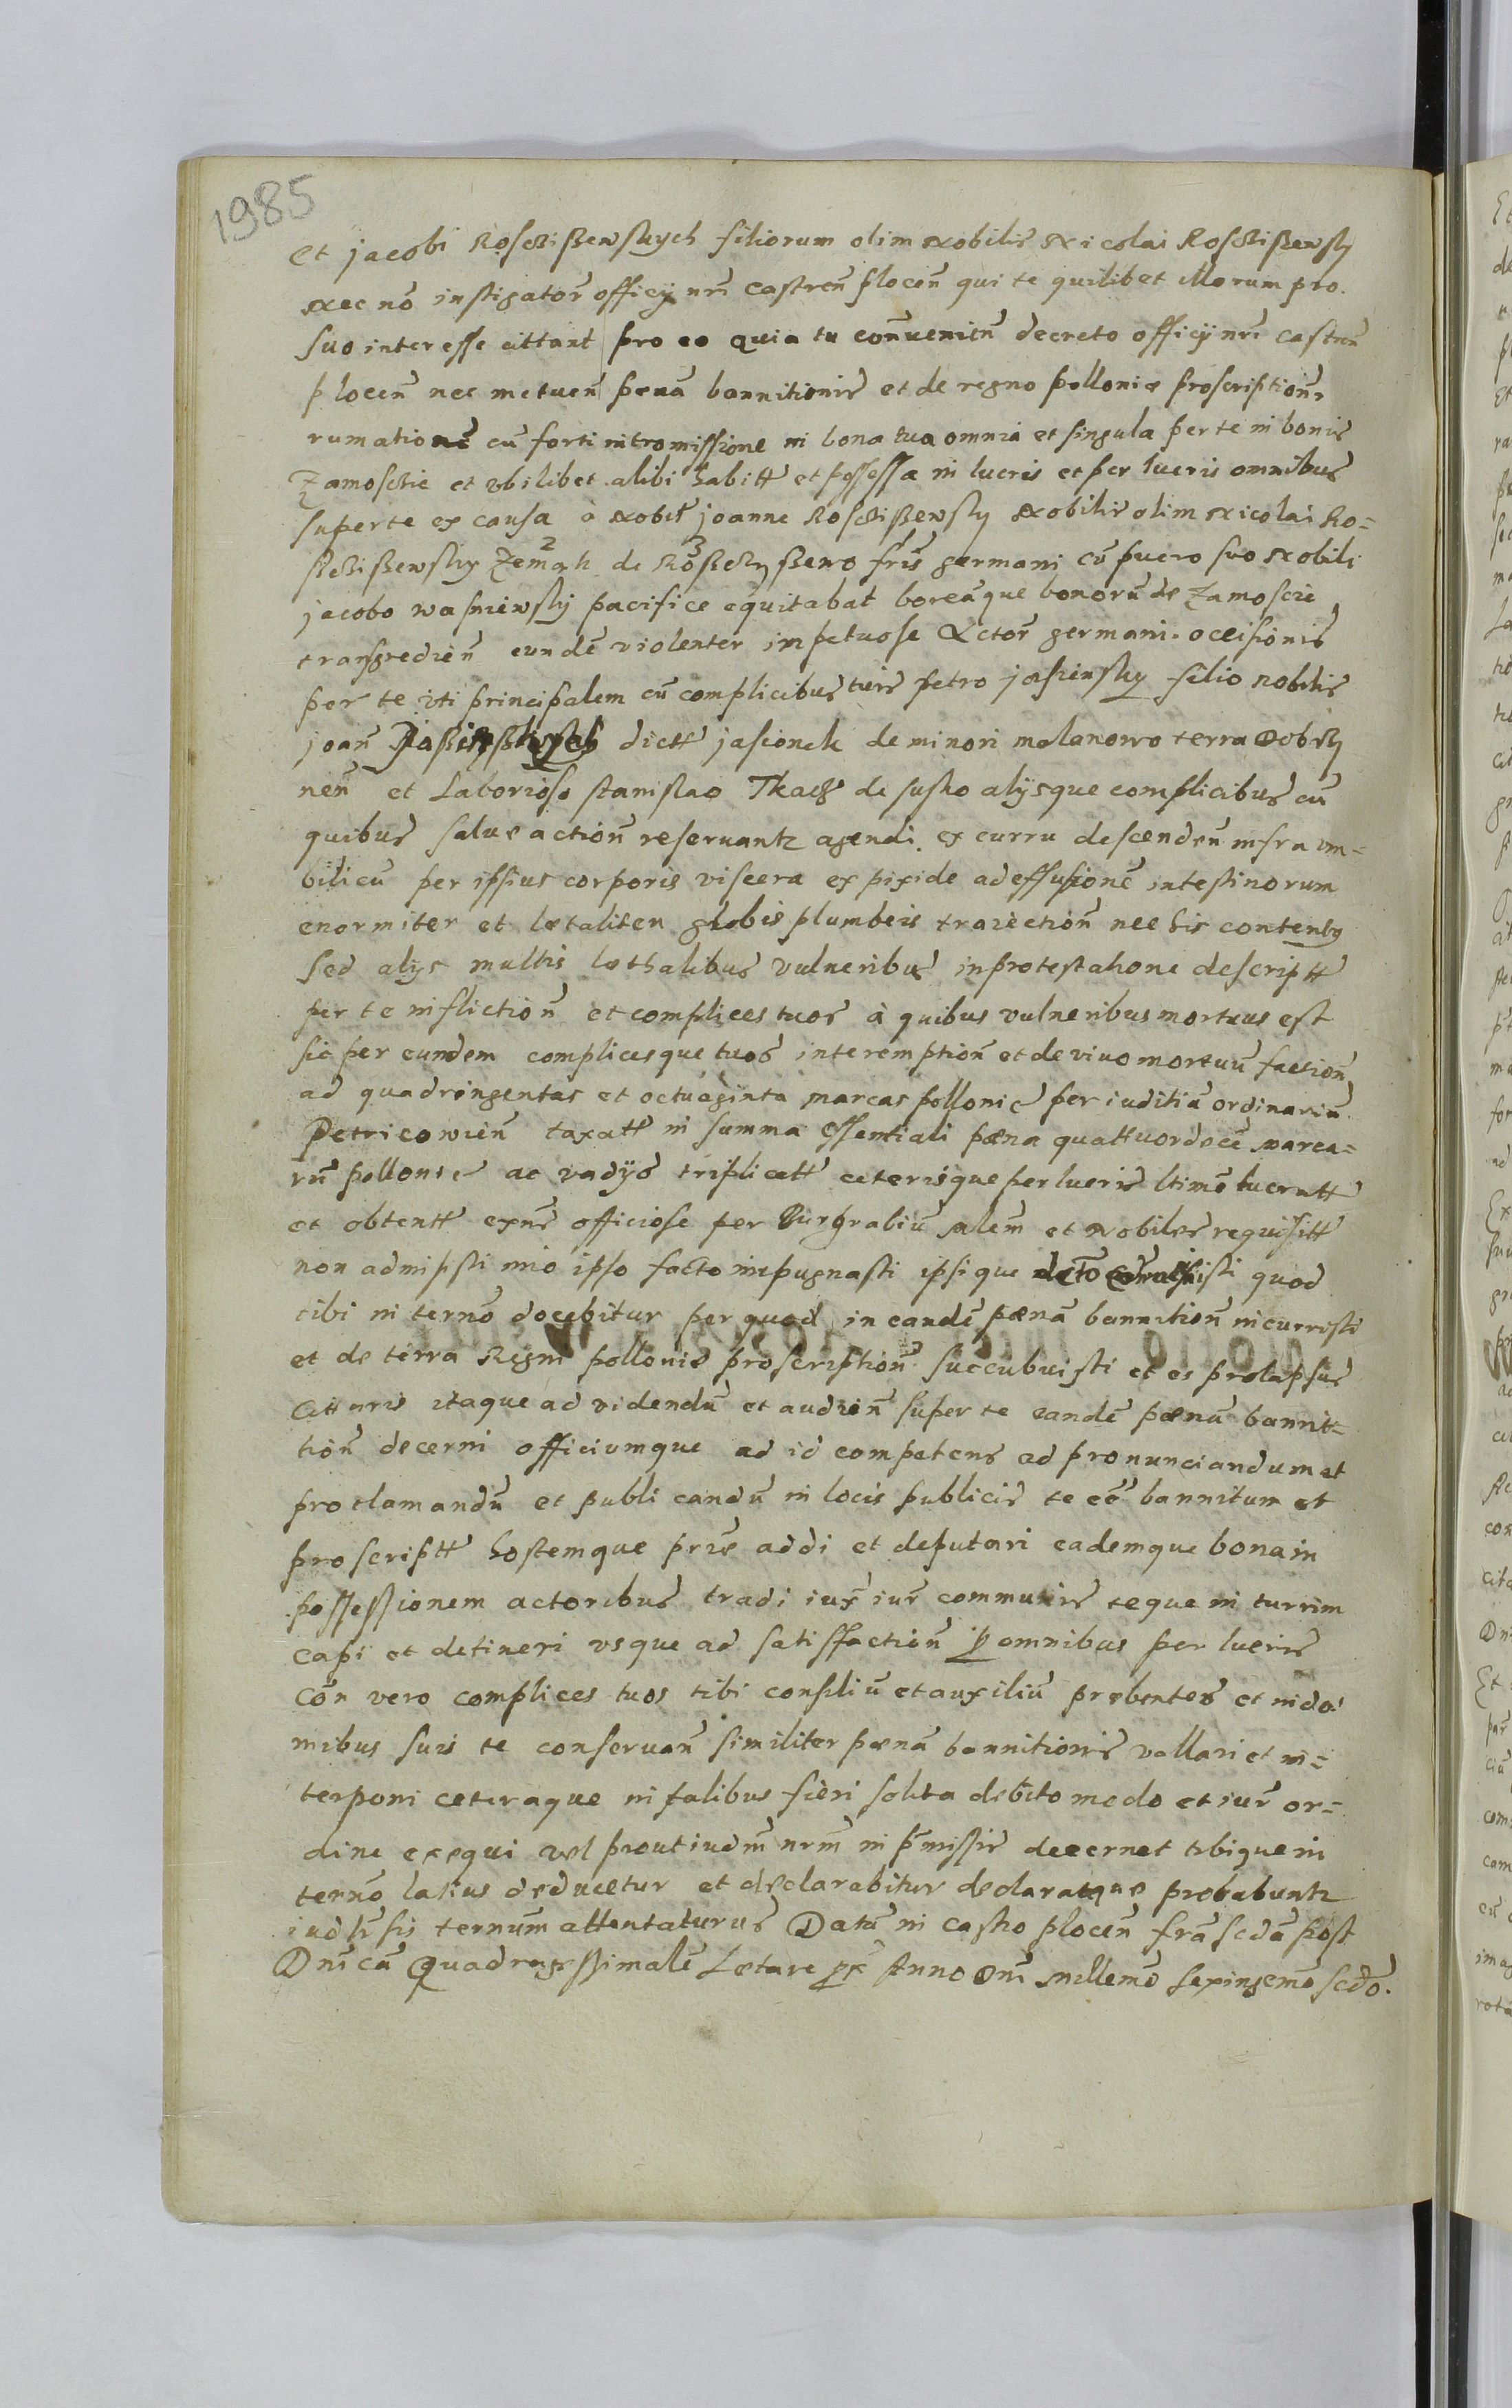 1985
et Jacobi Rosciszewskych filiorum olim Nobilis Nicolai Rosciszewsky
nec no instigator officij nri castren plocen qui te quilibet illorum pro
suo interesse cittant pro eo quia tu conuenien decreto officij nri castren
plocen nec metuen pænā bannitionis et de regno polloniæ proscription
rumationē cū forti intromissione in bona tua omnia et singula per te in bonis
Zamoscie et vbilibet alibi habitt et possessa in lucris et per lucris omnibus
super te ex causa à Nobil Joanne Rosciszewsky Nobilis olim Nicolai Ro=
scziszewsky de fris germani cū puero suo Nobili
Jacobo wasniewsky pacifice equitabat boreāque bonorū de Zamoscie
transgredien eundē violenter impetuose Actor germani occisionis
per te vti principalem cū complicibus tuis petro Jasiensky filio nobilis
joan dictt jasionek de minori malanowo terra Dobrzy
nen et Laborioso stanislao Tkacz de susko alijsque complicibus cū
quibus saluæ action reseruantr agendi ex curru descenden infra vm=
bilicū per ipsius corporis viscera ex pixide ad effusionē intestinorum
enormiter et lætaliter globis plumbeis traiection nec his contentus
sed alijs multis læthalibus vulneribus in protestatione descriptt
per te infliction et complices tuos à quibus vulneribus mortuus est
sic per eundem complicesque tuos interemption et de viuo mortuū faction
ad quadringentas et octuaginta marcas pollonic per iuditiū ordinariū
Petricowien taxatt in summa essentiali pæna quattuordecē marca=
rū pollonic ac vadijs triplicatt ceterisque perlucris ltime lucratt
et obtentt exns officiose per Burgrabiū alem et Nobiles requisitt
non admisisti imo ipso facto impugnasti ipsique quod
tibi in ternō docebitur per quod in eandē pænā bannition incurristi
et de terra Regni pollonie proscription succubuisti et es prolapsus
Citaris itaque ad videndū et audien super te eandē pænā bannit=
tion decerni officiumque ad id competens ad pronunciandum et
proclamandū et publicandū in locis publicis te eē bannitum et
proscriptt hostemque pris addi et deputari eademque bona in
possessionem actoribus tradi iux iur communis teque in turrim
capi et detineri vsque ad satisfaction p omnibus perlucris
Con vero complices tuos tibi consiliū et auxiliū præbentes et in do
mibus suis te conseruan similiter pænā bannitionis vallari et in=
terponi ceteraque in talibus fieri solita debito modo et iur or=
dine exequi vel prout iudm nrm in pmissis decernet tibique in
ternō latius deducetur et declarabitur declarataque probabuntr
iudr sis ternum attentaturus Datū in castro plocen fra scda post
Dnicā Quadragessimalē Lætare px Anno Dni millemo sexingemo scdo.